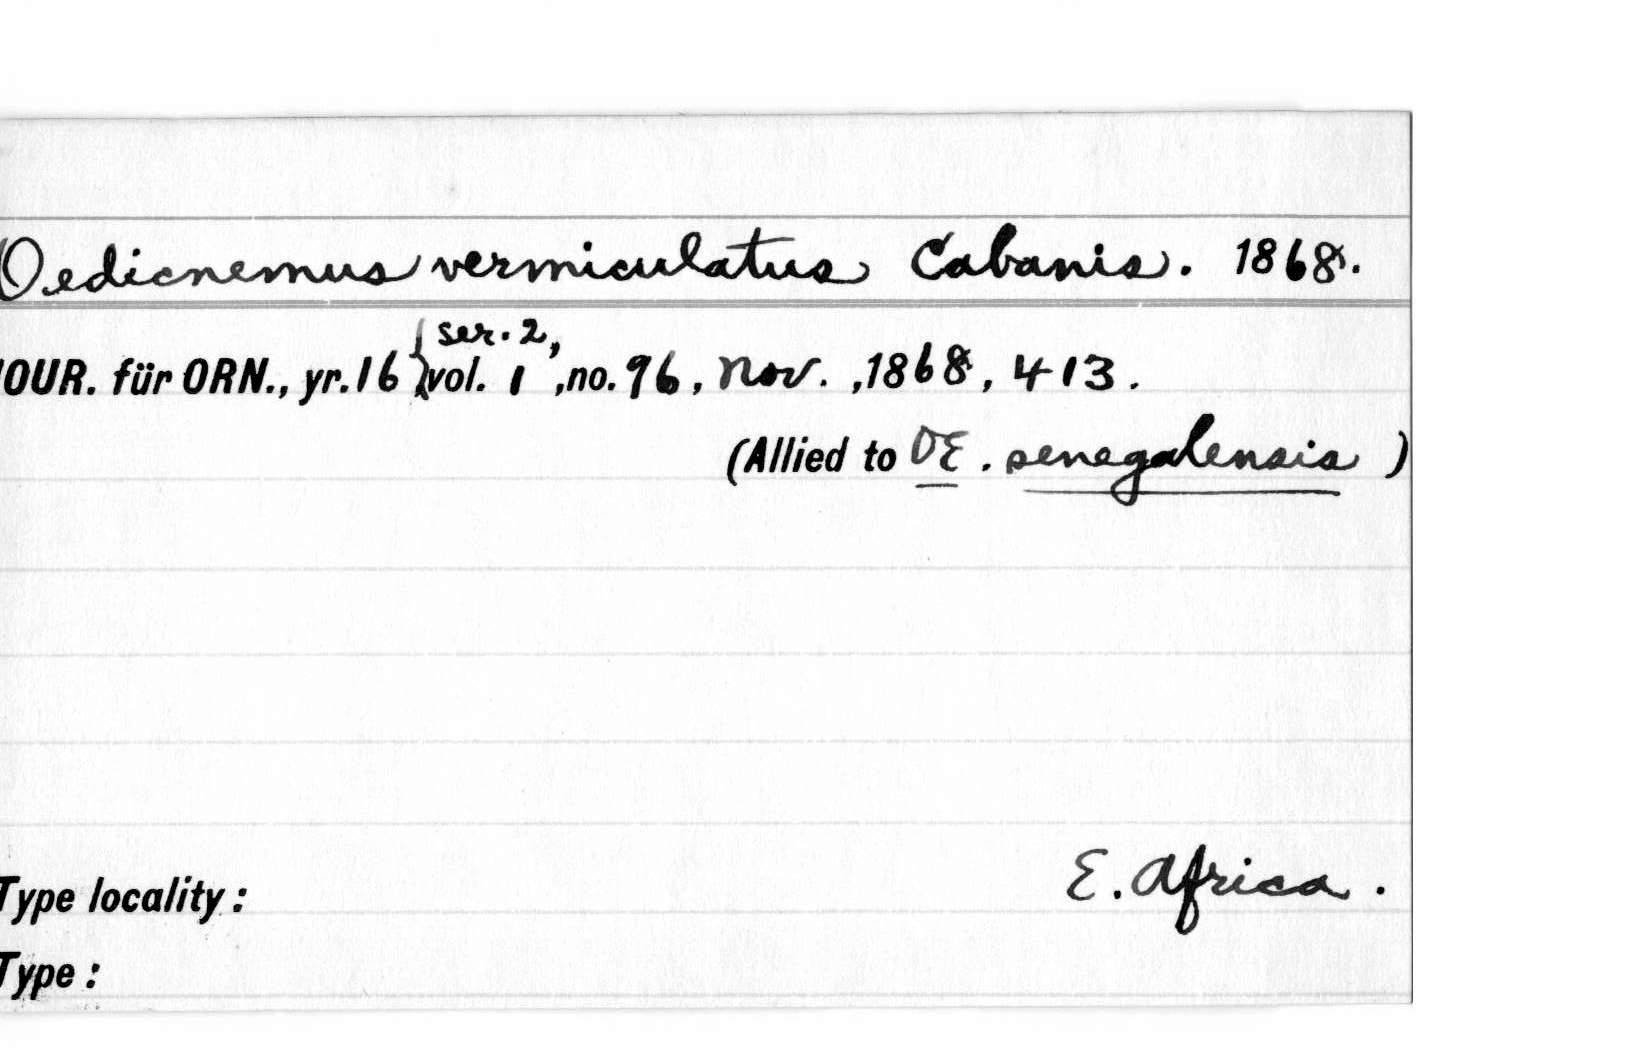 Oedicnemus vermiculatus Cabanis. 1868.
JOUR. für ORN., yr.16 {ser. 2, vol. 1, no. 96, Nov., 1868, 413.
(Allied to OE. senegalensis)
E. Africa.
Type locality:
Type: